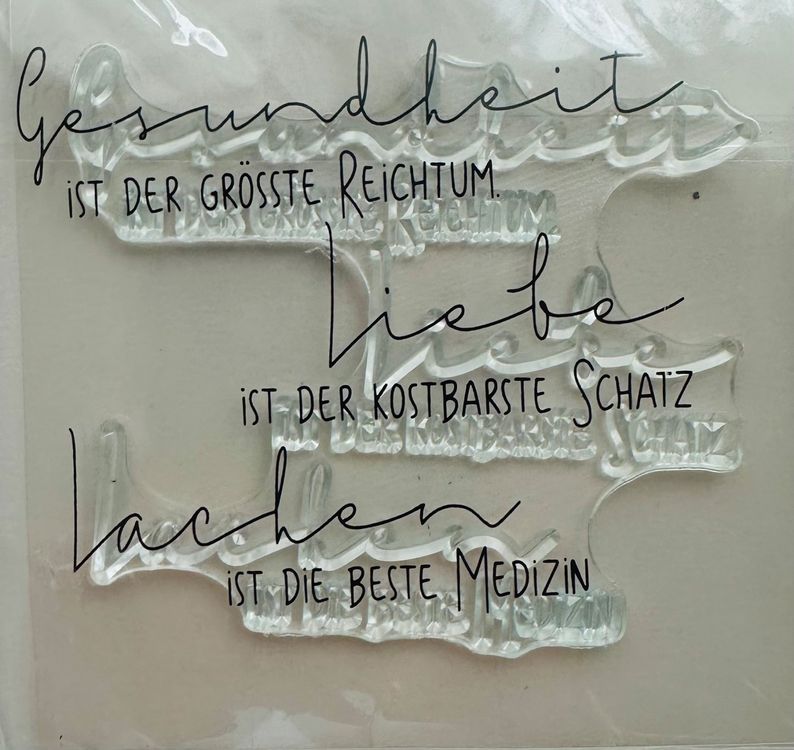 Gesundheit
iST DER GRÖSSTE REiCHTUM.
Liebe
iST DER KOSTBARSTE SCHATZ
Lachen
iST DiE BESTE MEDiZiN